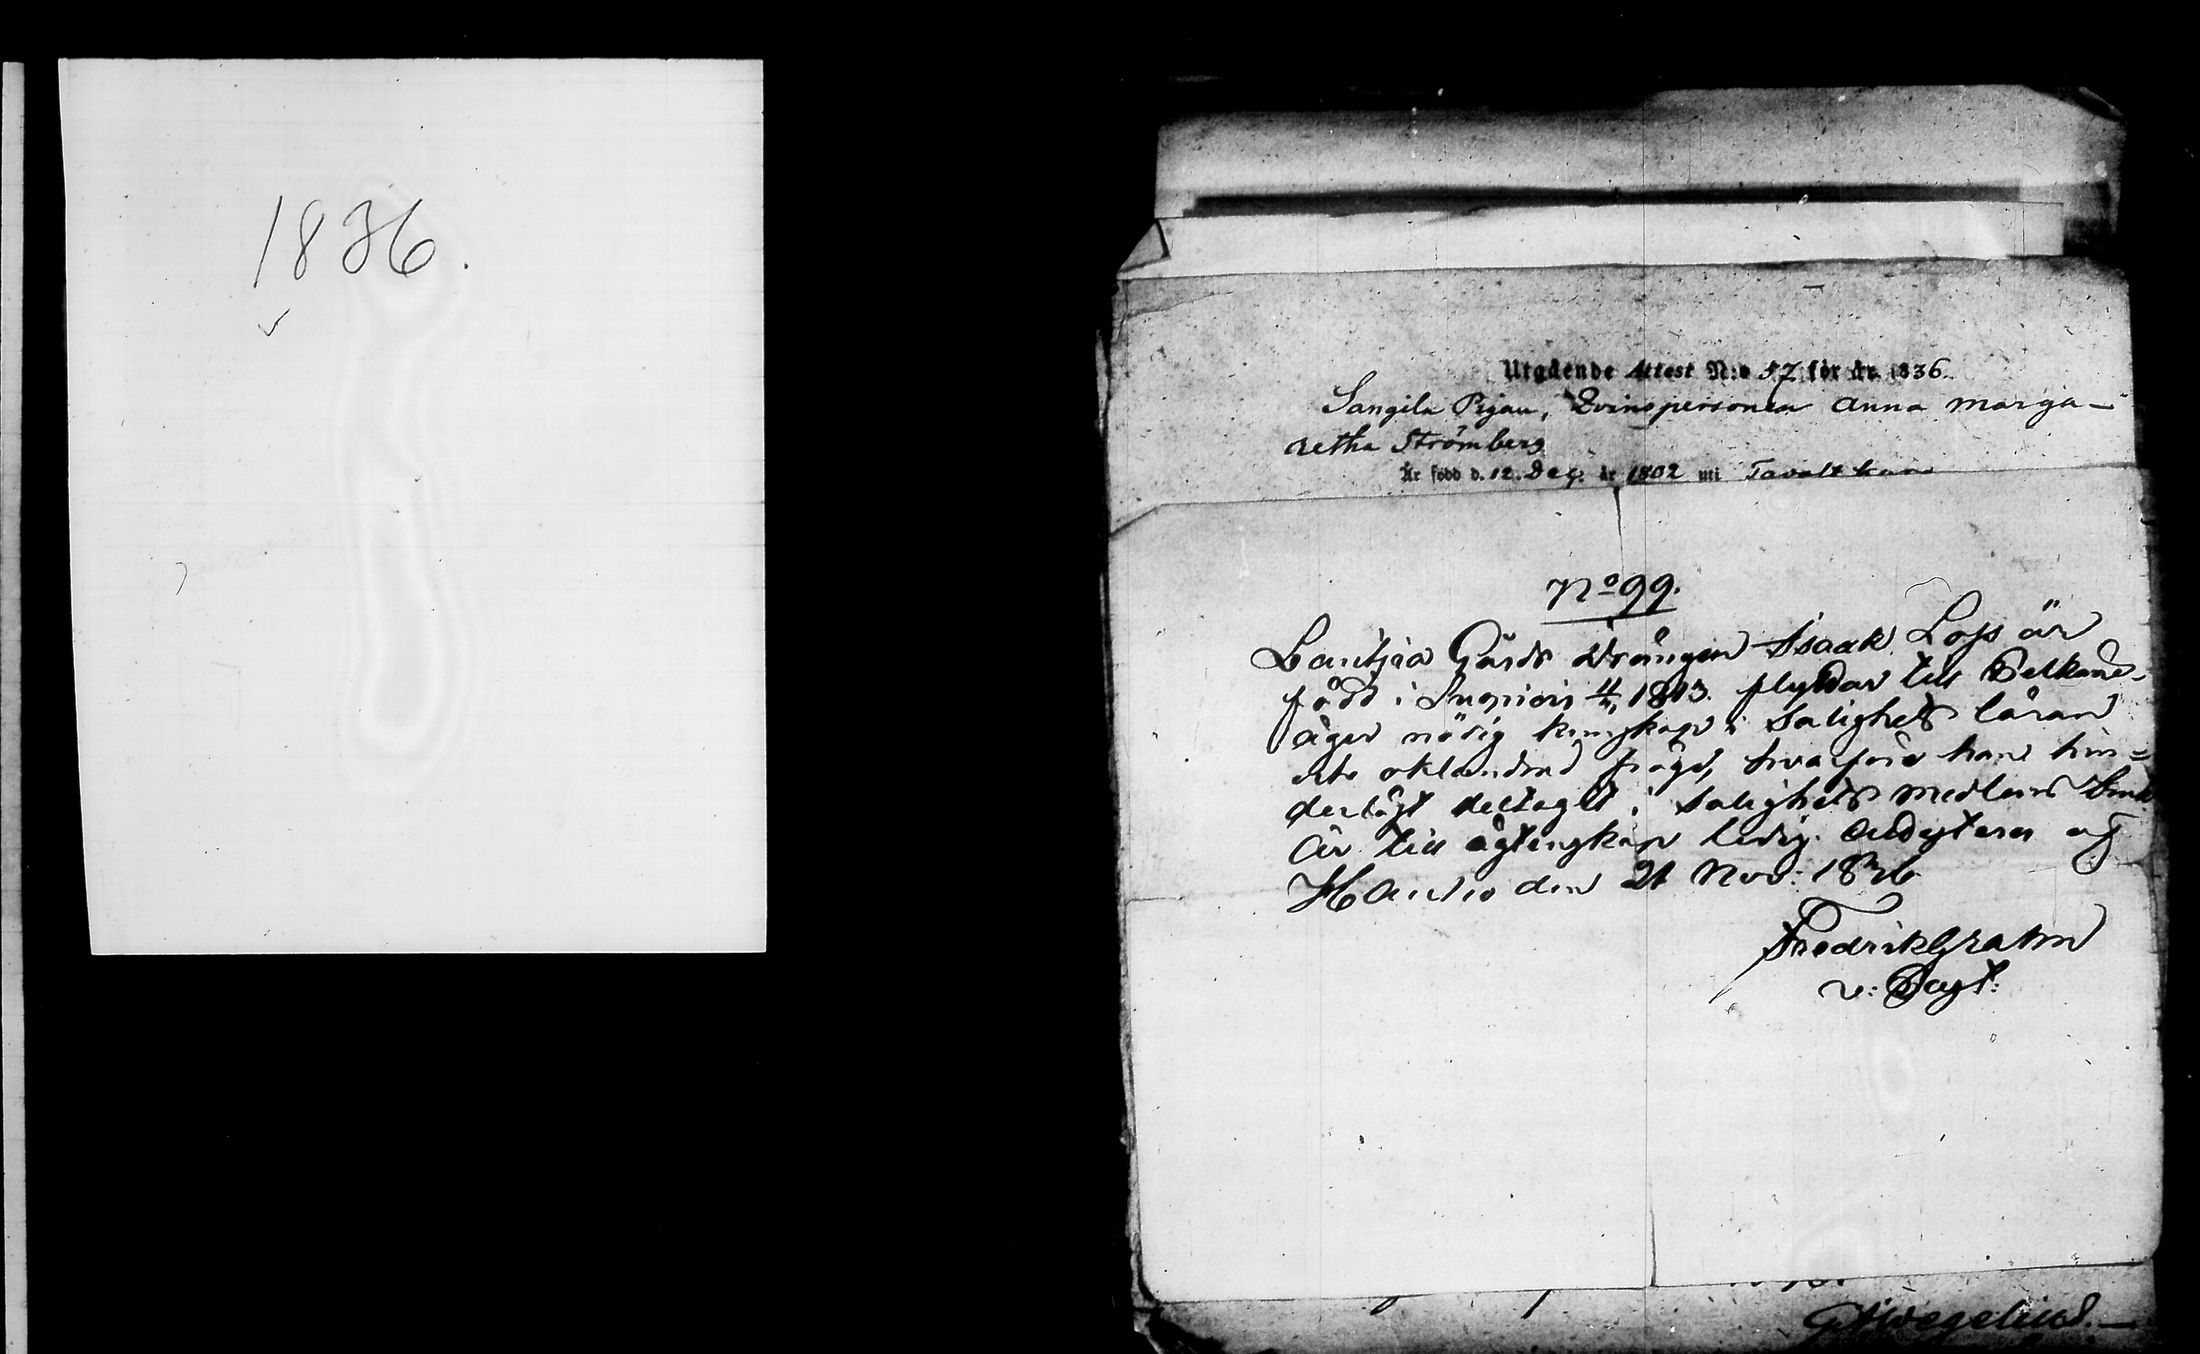 1836.
Utgående Attest N:o 57 för år 1836.
Sangila Pigan, Qvinspersonen Anna Marga-
retha Strömberg
Är född d. 12. Dec. år 1802 uti Tavastkun
No 99.
Lautjia Gårds drängen Isaak Lofs är
född i 1813. flyttar till Pelkäne
äger nödig kunskap i Salighets läran
och oklandrad frägd, hvarföre han hin=
derlöst deltagit i Salighets medlens bruk
Är till ägtenskap ledig. Audesteres af
Hauho den 21 Nov: 1836
Fredrik Grahn
v: Past:
Wegelius.